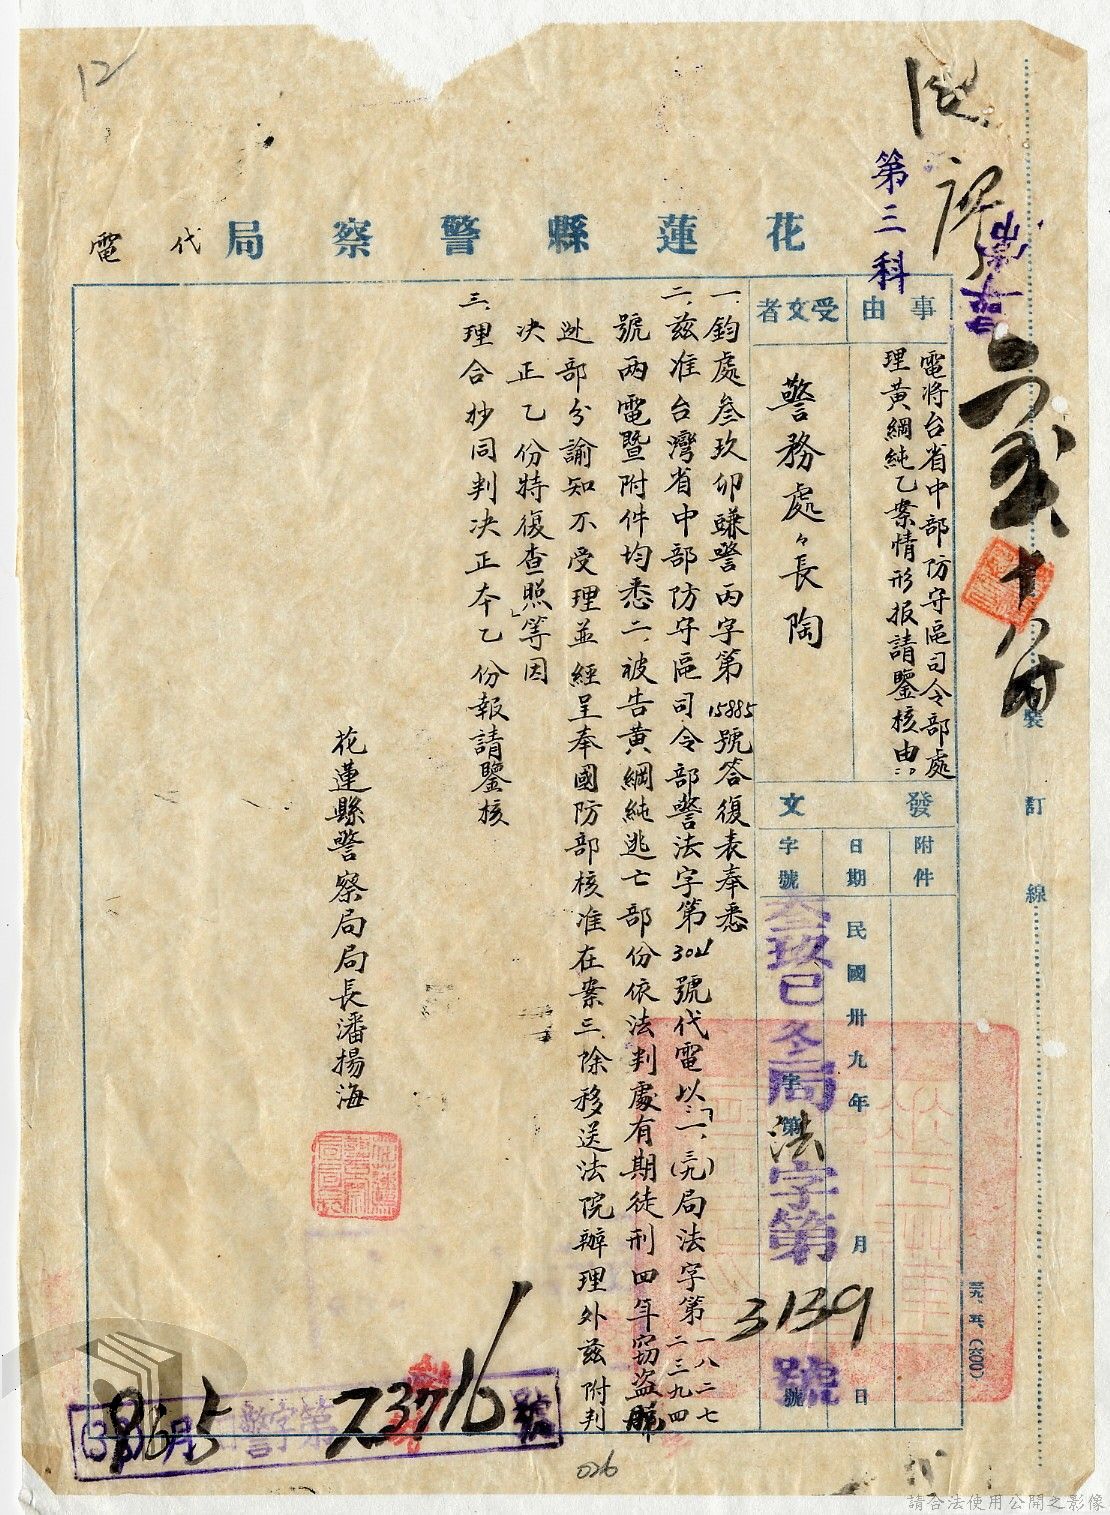 12
第三科
花蓮縣警察局代電
事由
電將台省中部防守區司令部處
理黃綱純乙案情形报請鑒核由
受文者
警務處々長陶
發文
附件
日期
民國卅九年 月 日
字號
叁玖巳冬局法字第3139號
字第 號
一、鈞處叁玖卯蠊警丙字第15885號答復表奉悉
二、茲准台灣省中部防守區司令部警法字第 號代電以「一、(三九)局法字第一八二七 二三九四
號兩電暨附件均悉二、被告黃綱純逃亡部份依法判處有期徒刑四年竊盜
部分諭知不受理並經呈奉國防部核准在案三、除移送法院辦理外茲附判
决正乙份特復查照」等因
三、理合抄同判决正夲乙份報請鑒核
花蓮縣警察局局長潘揚海
裝訂線
三九、五、(2,000)
警字第73716號
026
請合法使用公開之影像